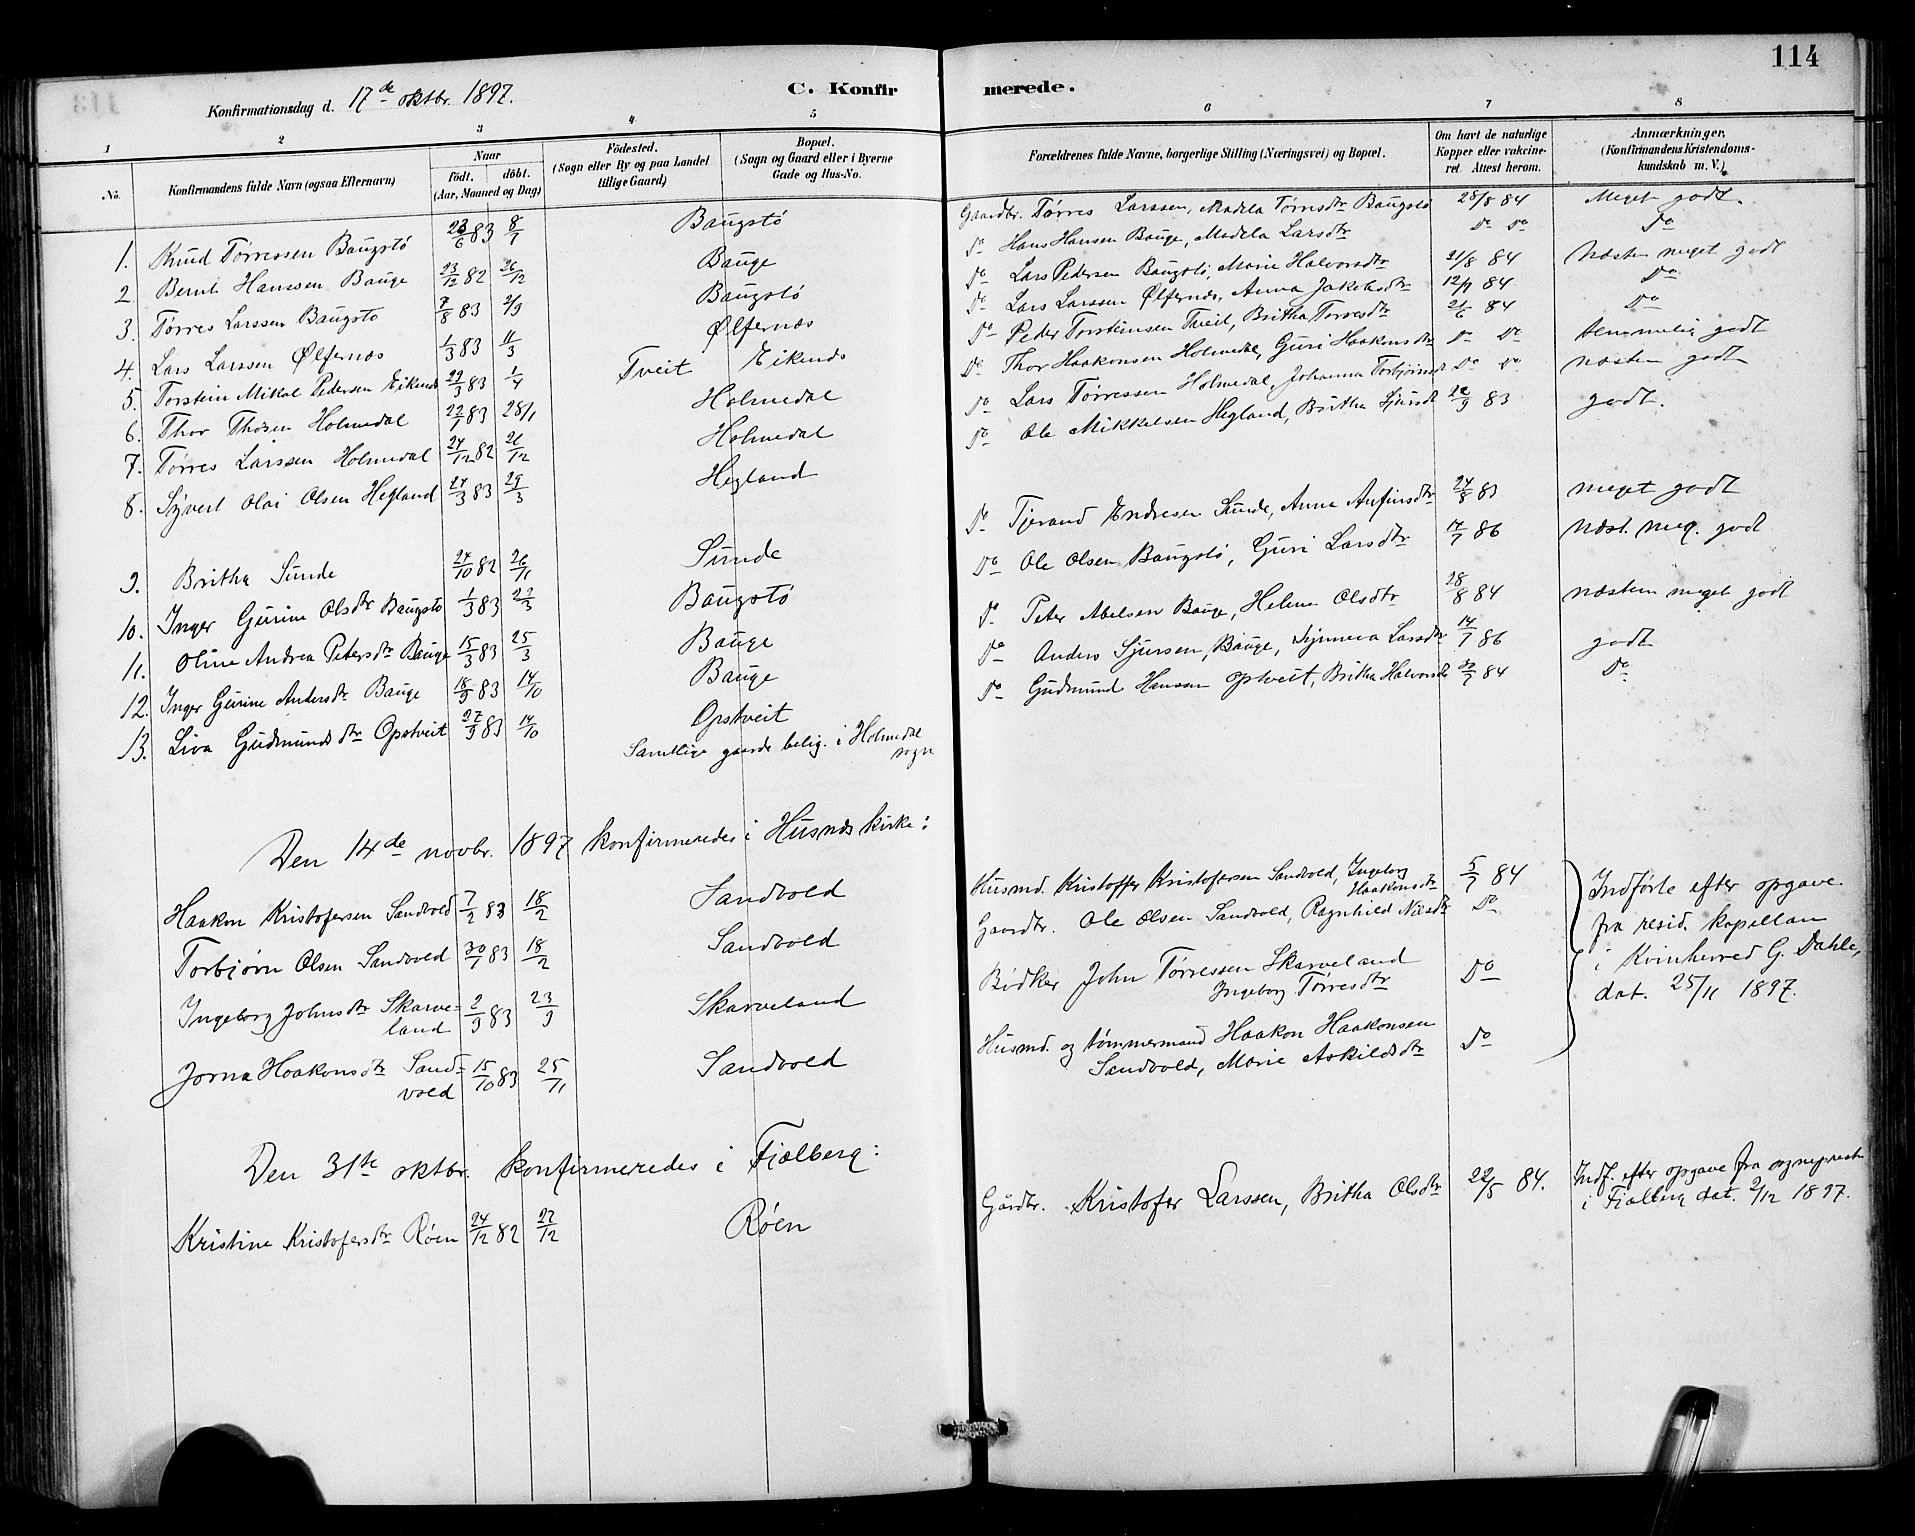 114
Konfirmationsdag d. 17de oktbr. 1897.
C. Konfirmerede.
1 2 3 4 5 6 7 8
No. Konfirmandens fulde Navn (ogsaa Efternavn)
Naar
født. døbt.
(Aar, Maaned og Dag)
Fødested.
(Sogn eller By og paa Landet
tillige Gaard)
Bopæl.
(Sogn og Gaard eller i Byerne
Gade og Hus-No.
Forældrenes fulde Navne, borgerlige Stilling (Næringsvei) og Bopæl.
Om havt de naturlige
Kopper eller vakcine-
ret. Attest herom.
Anmærkninger.
(Konfirmandens Kristendoms-
kundskab m. V.)
1. Knud Tørressen Baugstø 23/6 83 8/7 Baugstø Gaardbr. Tørres Larssen, Madela Tørresdtr Baugstø 28/8 84 Meget godt.
2 Bernt Hanssen Bauge 23/12 82 26/12 Bauge Do Hans Hansen Bauge, Madela Larsdtr Do Do Do
3. Tørres Larssen Baugstø 7/8 83 2/9 Baugstø Do Lars Pedersen Baugstø, Marie Halvorsdtr 21/8 84 Næsten meget godt
4. Lars Larssen Ølfernæs 1/3 83 11/3 Ølfernæs Do Lars Larssen Ølfernæs, Anna Jakobsdtr 12/9 84 Do
5. Torstein Mikal Pedersen Eikenæs 29/3 83 1/4 Tveit Eikenæs Do Peter Torsteinsen Tveit, Britha Torresdtr 21/6 84 Do
6. Thor Thosen Holmedal 22/1 83 28/1 Holmedal Do Thor Haakonsen Holmedal, Guri Haakonsdtr Do Do temmelig godt
7. Tørres Larssen Holmedal 24/12 82 26/12 Holmedal Do Lars Tørressen Holmedal, Johanna Torbjørnsdtr Do Do næsten godt
8. Syvert Olai Olsen Hegland 24/3 83 29/3 Hegland Do Ole Mikkelsen Hegland, Britha Sjursdtr 22/9 83 godt.
9. Britha Sunde 24/10 82 26/11 Sunde Do Tjerand Endresen Sunde, Anna Anfinsdtr 24/8 83 meget godt
10. Inger Gurine Olsdtr Baugstø 1/3 83 22/3 Baugstø Do Ole Olsen Baugstø, Guri Larsdtr 14/7 86 Næst. meg. godt
11. Oline Andrea Petersdtr Bauge 15/3 83 25/3 Bauge Do Peter Abelsen Bauge, Helene Olsdtr 28/8 84 næsten meget godt
12. Inger Gurine Andersdtr Bauge 18/9 83 14/10 Bauge Do Anders Sjursen, Bauge, Synneva Larsdtr 14/7 86 godt
13. Liva Gudmundsdtr Opstveit 27/9 83 14/10 Opstveit Do Gudmund Hanssen Opstveit, Britha Halvorsdtr 84 Do
Samtlige gaarde belig. i Holmedal
sogn
Den 14de novbr. 1897 konfirmeredes i Husnæs kirke:
Haakon Kristofersen Sandvold 7/2 83 18/2 Sandvold Husmd. Kristoffer Kristofersen Sandvold, Ingeborg
Haakonsdtr 5/7 84
Torbjørn Olsen Sandvold 30/1 83 18/2 Sandvold Gaardbr. Ole Olsen Sandvold, Ragnhild Nilsdtr Do
Ingeborg Johnsdtr Skarve-
land 2/9 83 23/9 Skarveland Bødker John Tørressen Skarveland
Ingeborg Tørresdtr Do
Jorna Haakonsdtr Sand-
vold 15/10 83 25/11 Sandvold Husmd. og tømmermand Haakon Haakonsen
Sandvold, Marie Askildsdtr Do
Indførte efter opgave
fra resid. kapellan
i Kvinherred G. Dahle,
dat. 25/11 1897.
Den 31te oktbr. konfirmeredes i Fjælberg:
Kristine Kristofersdtr Røen 24/12 82 27/12 Røen Gårdbr. Kristofer Larssen, Britha Olsdtr 22/5 84.
Indf. efter opgave fra sogneprest
i Fjælberg dat. 2/12 1897.